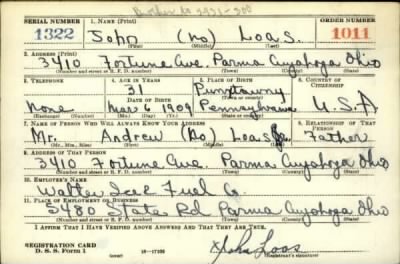 SERIAL NUMBER 1. NAME (Print) ORDER NUMBER
1322 John (No) Loas. 1011
(First) (Middle) (Last)
2. ADDRESS (Print)
3410 Fortune Ave. Parma Cuyahoga Ohio
(Number and street or R. F. D. number) (Town) (County) (State)
3. TELEPHONE 4. AGE IN YEARS 5. PLACE OF BIRTH 6. COUNTRY OF CITIZENSHIP
31 Punxtawny
(Town or county)
None DATE OF BIRTH Mar. 6 1909 Pennsylvania U.S.A
(Exchange) (Number) (Mo.) (Day) (Yr.) (State or country)
7. NAME OF PERSON WHO WILL ALWAYS KNOW YOUR ADDRESS 8. RELATIONSHIP OF THAT PERSON
Mr. Andrew (No) Loas Father
(Mr., Mrs., Miss) (First) (Middle) (Last)
9. ADDRESS OF THAT PERSON
3410 Fortune Ave. Parma Cuyahoga Ohio
(Number and street or R. F. D. number) (Town) (County) (State)
10. EMPLOYER'S NAME
Walter Fuel Co
11. PLACE OF EMPLOYMENT OR BUSINESS
5480 State Rd Parma Cuyahoga Ohio
(Number and street or R. F. D. number) (Town) (County) (State)
I AFFIRM THAT I HAVE VERIFIED ABOVE ANSWERS AND THAT THEY ARE TRUE.
REGISTRATION CARD
D. S. S. Form 1 16-17105 x John Loas
(Registrant's signature)